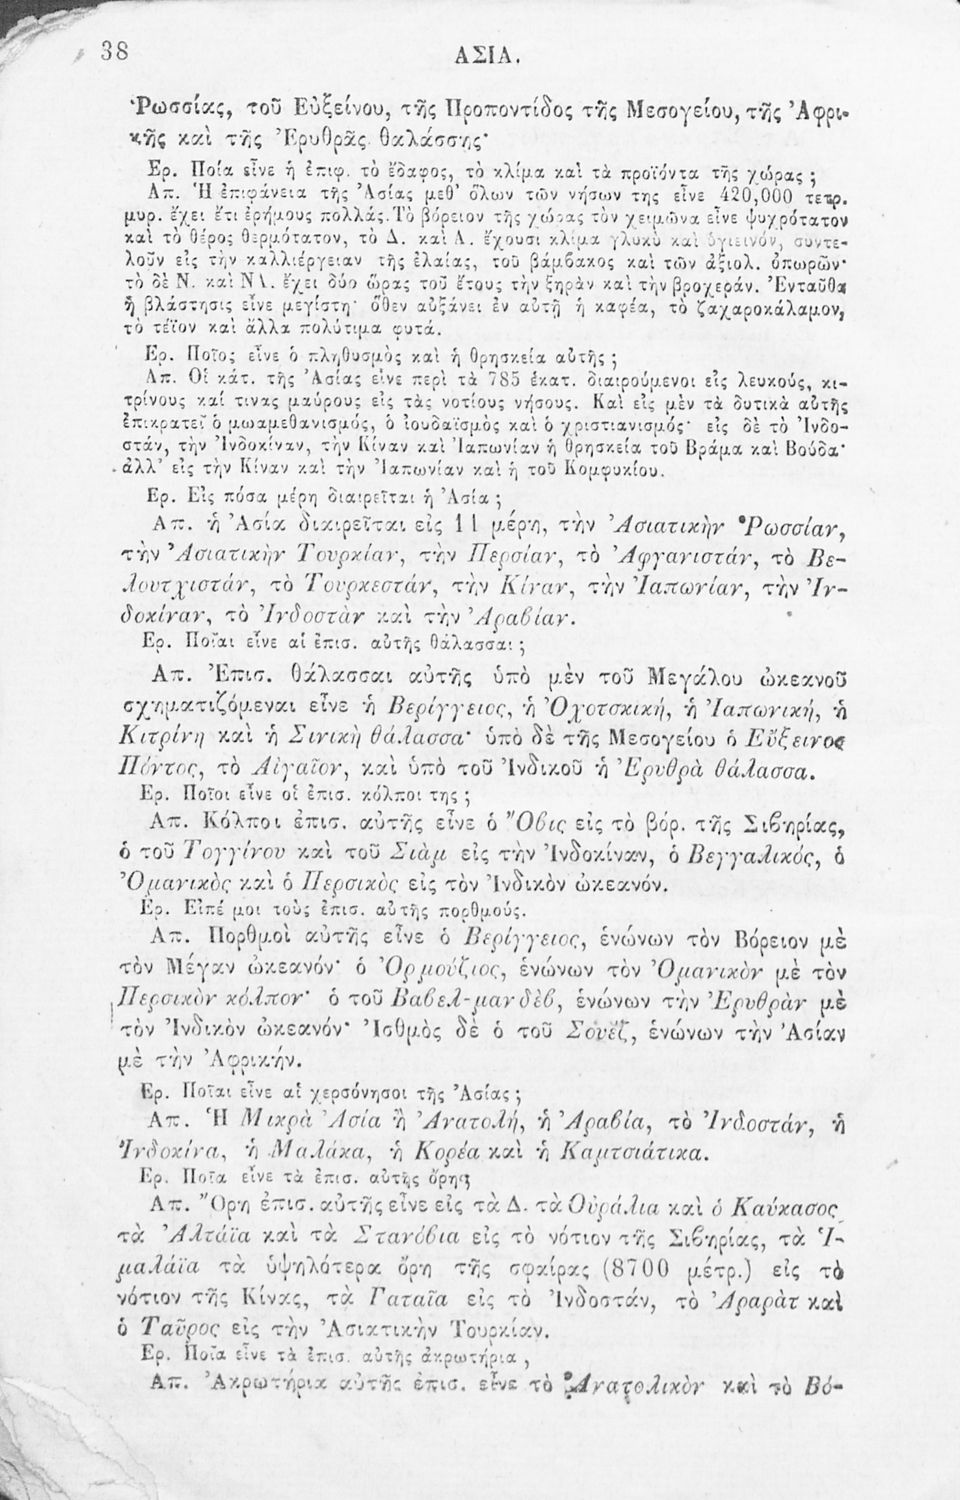 38
ΑΣΙΑ.
Ῥωσσίας, τοῦ Εὐξείνου, τῆς Προποντίδος τῆς Μεσογείου, τῆς Ἀφρι-
κῆς καὶ τῆς Ἐρυθρᾶς θαλάσσης·
Ερ. Ποία εἶνε ἡ ἐπιφ. τὸ ἔδαφος, τὸ κλίμα καὶ τὰ προϊόντα τῆς χώρας ;
Απ. Ἡ ἐπιφάνεια τῆς Ἀσίας μεθ’ ὅλων τῶν νήσων της εἶνε 420,000 τετρ.
μυρ. ἔχει ἔτι ἐρήμους πολλάς. Τὸ βόρειον τῆς χώρας τὸν χειμῶνα εἶνε ψυχρότατον
καὶ τὸ θέρος θερμότατον, τὸ Δ. καὶ Α. ἔχουσι κλίμα γλυκὺ καὶ ὑγιεινόν, συντε-
λοῦν εἰς τὴν καλλιέργειαν τῆς ἐλαίας, τοῦ βάμβακος καὶ τῶν ἀξιολ. ὀπωρῶν·
τὸ δὲ Ν. καὶ ΝΑ. ἔχει δύο ὥρας τοῦ ἔτους τὴν ξηρὰν καὶ τὴν βροχεράν. Ἐνταῦθα
ἡ βλάστησις εἶνε μεγίστη· ὅθεν αὐξάνει ἐν αὐτῇ ἡ καφέα, τὸ ζαχαροκάλαμον,
τὸ τέϊον καὶ ἄλλα πολύτιμα φυτά.
Ερ. Ποῖος εἶνε ὁ πληθυσμὸς καὶ ἡ θρησκεία αὐτῆς ;
Απ. Οἱ κάτ. τῆς Ἀσίας εἶνε περὶ τὰ 785 ἑκατ. διαιρούμενοι εἰς λευκούς, κι-
τρίνους καί τινας μαύρους εἰς τὰς νοτίους νήσους. Καὶ εἰς μὲν τὰ δυτικὰ αὐτῆς
ἐπικρατεῖ ὁ μωαμεθανισμός, ὁ ἰουδαϊσμὸς καὶ ὁ χριστιανισμός· εἰς δὲ τὸ Ἰνδο-
στάν, τὴν Ἰνδοκίναν, τὴν Κίναν καὶ Ἰαπωνίαν ἡ θρησκεία τοῦ Βράμα καὶ Βούδα·
ἀλλ’ εἰς τὴν Κίναν καὶ τὴν Ἰαπωνίαν καὶ ἡ τοῦ Κομφυκίου.
Ερ. Εἰς πόσα μέρη διαιρεῖται ἡ Ἀσία ;
Απ. ἡ Ἀσία διαιρεῖται εἰς 11 μέρη, τὴν Ἀσιατικὴν Ῥωσσίαν,
τὴν Ἀσιατικὴν Τουρκίαν, τὴν Περσίαν, τὸ Ἀφγανιστάν, τὸ Βε-
λουτχιστάν, τὸ Τουρκεστάν, τὴν Κίναν, τὴν Ἰαπωνίαν, τὴν Ἰν-
δοκίναν, τὸ Ἰνδοστὰν καὶ τὴν Ἀραβίαν.
Ερ. Ποῖαι εἶνε αἱ ἐπισ. αὐτῆς θάλασσαι ;
Απ. Ἐπισ. θάλασσαι αὐτῆς ὑπὸ μὲν τοῦ Μεγάλου ὠκεανοῦ
σχηματιζόμεναι εἶνε ἡ Βερίγγειος, ἡ Ὀχοτσκική, ἡ Ἰαπωνική, ἡ
Κιτρίνη καὶ ἡ Σινικὴ θάλασσα· ὑπὸ δὲ τῆς Μεσογείου ὁ Εὔξεινος
Πόντος, τὸ Αἰγαῖον, καὶ ὑπὸ τοῦ Ἰνδικοῦ ἡ Ἐρυθρὰ θάλασσα.
Ερ. Ποῖοι εἶνε οἱ ἐπισ. κόλποι της ;
Απ. Κόλποι ἐπισ. αὐτῆς εἶνε ὁ Ὄβις εἰς τὸ βόρ. τῆς Σιβηρίας,
ὁ τοῦ Τογγίνου καὶ τοῦ Σιὰμ εἰς τὴν Ἰνδοκίναν, ὁ Βεγγαλικός, ὁ
Ὁμανικὸς καὶ ὁ Περσικὸς εἰς τὸν Ἰνδικὸν ὠκεανόν.
Ερ. Εἰπέ μοι τοὺς ἐπισ. αὐτῆς πορθμούς.
Απ. Πορθμοὶ αὐτῆς εἶνε ὁ Βερίγγειος, ἑνώνων τὸν Βόρειον μὲ
τὸν Μέγαν ὠκεανόν· ὁ Ὀρμούζιος, ἑνώνων τὸν Ὀμανικὸν μὲ τὸν
Περσικὸν κόλπον· ὁ τοῦ Βαβελ-μανδέβ, ἑνώνων τὴν Ἐρυθρὰν μὲ
τὸν Ἰνδικὸν ὠκεανόν· Ἰσθμὸς δὲ ὁ τοῦ Σουέζ, ἑνώνων τὴν Ἀσίαν
μὲ τὴν Ἀφρικήν.
Ερ. Ποῖαι εἶνε αἱ χερσόνησοι τῆς Ἀσίας ;
Απ. Ἡ Μικρὰ Ἀσία ἢ Ἀνατολή, ἡ Ἀραβία, τὸ Ἰνδοστάν, ἡ
Ἰνδοκίνα, ἡ Μαλάκα, ἡ Κορέα καὶ ἡ Καμτσιάτικα.
Ερ. Ποῖα εἶνε τὰ ἐπισ. αὐτῆς ὄρη;
Απ. Ὄρη ἐπισ. αὐτῆς εἶνε εἰς τὰ Δ. τὰ Οὐράλια καὶ ὁ Καύκασος
τὰ Ἀλτάϊα καὶ τὰ Στανόβια εἰς τὸ νότιον τῆς Σιβηρίας, τὰ Ἱ-
μαλάϊα τὰ ὑψηλότερα ὄρη τῆς σφαίρας (8700 μέτρ.) εἰς τὸ
νότιον τῆς Κίνας, τὰ Γαταῖα εἰς τὸ Ἰνδοστάν, τὸ Ἀραρὰτ καὶ
ὁ Ταῦρος εἰς τὴν Ἀσιατικὴν Τουρκίαν.
Ερ. Ποῖα εἶνε τὰ ἐπισ. αὐτῆς ἀκρωτήρια ,
Απ. Ἀκρωτήρια αὐτῆς ἐπισ. εἶνε τὸ Ἀνατολικὸν καὶ τὸ Βό-